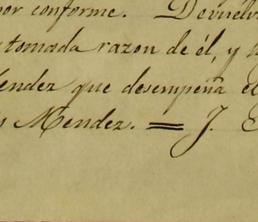 por conforme. Devuelv
tomada razon de él, y
endez que desempeña el
Mendez. = J.